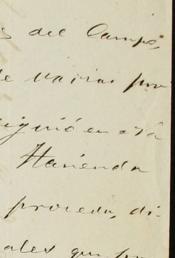 s del Campo,
de varias por
siguió en esta
Hacienda
proceda, di
ales que por